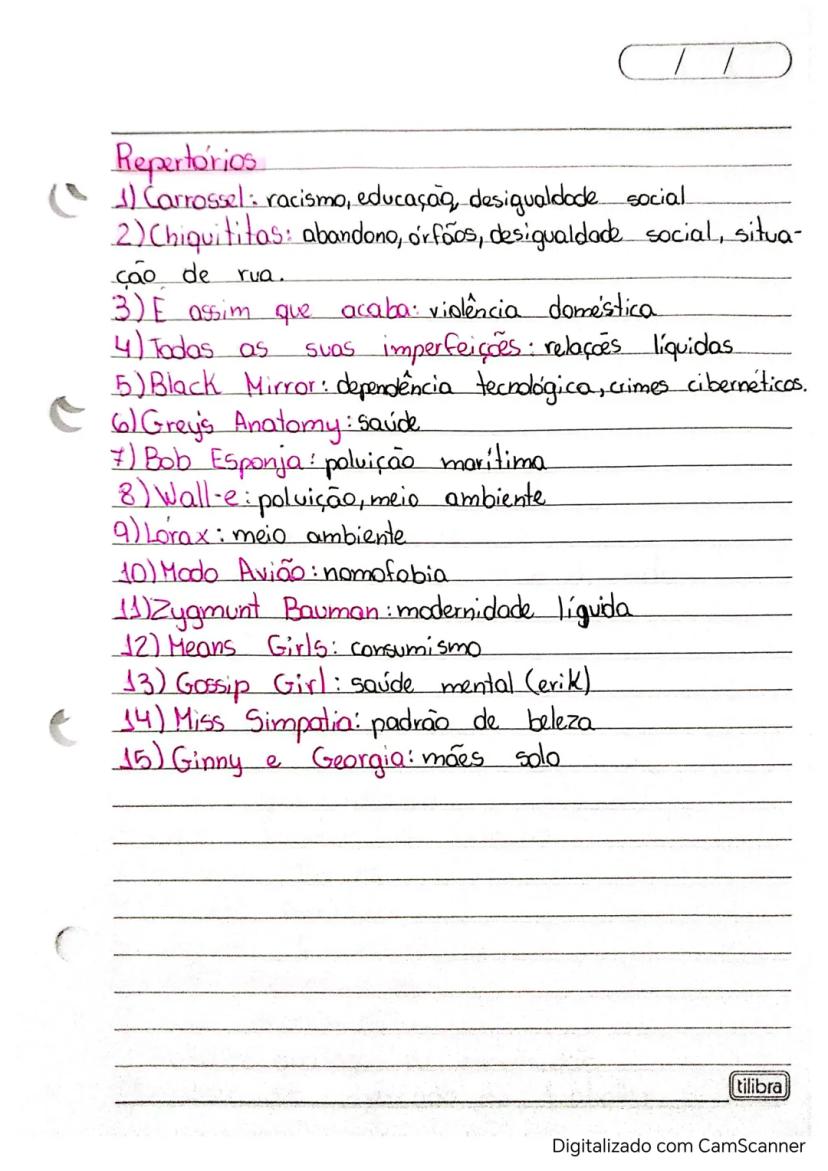 / /
Repertórios
1) Carrossel: racismo, educação, desigualdade social
2) Chiquititas: abandono, órfãos, desigualdade social, situa-
ção de rua.
3) E assim que acaba: violência doméstica
4) Todas as suas imperfeições: relações líquidas
5) Black Mirror: dependência tecnológica, crimes cibernéticos.
6) Grey's Anatomy: saúde
7) Bob Esponja: poluição marítima
8) Wall-e: poluição, meio ambiente
9) Lórax: meio ambiente
10) Modo Avião: nomofobia
11) Zygmunt Bauman: modernidade líquida
12) Means Girls: consumismo
13) Gossip Girl: saúde mental (erik)
14) Miss Simpatia: padrão de beleza
15) Ginny e Georgia: mães solo
tilibra
Digitalizado com CamScanner